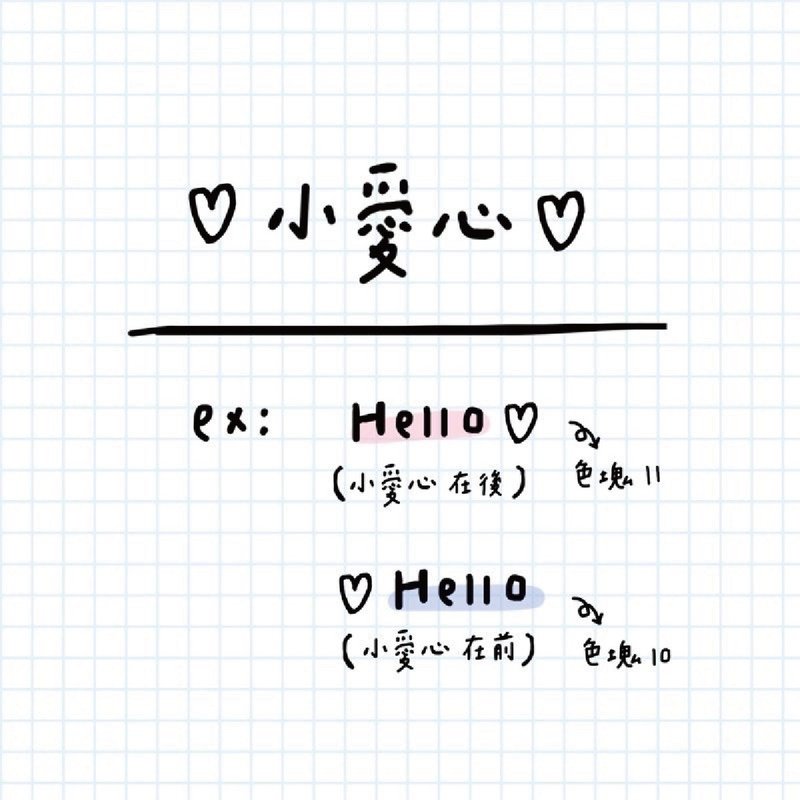 ♡ 小愛心 ♡
ex: Hello ♡
(小愛心 在後) 色塊 11
♡ Hello
(小愛心 在前) 色塊 10